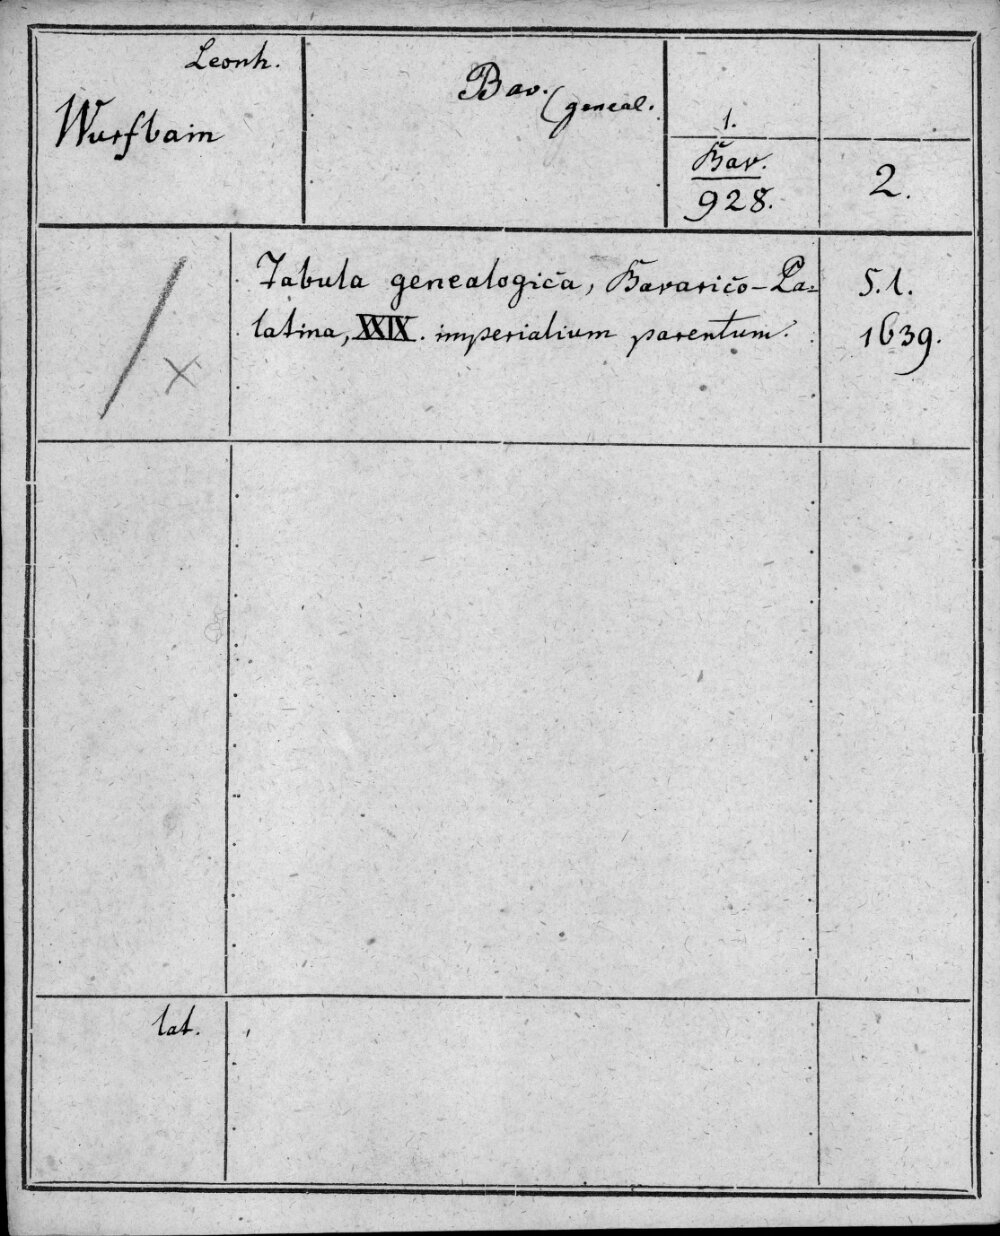 Leonh.
Wurfbain
Bav.
(geneal.
1.
Bav.
928.
2.
Tabula genealogica, Bavarico-Pa=
latina, XXIX. imperialium parentum.
S. l.
1639.
lat.